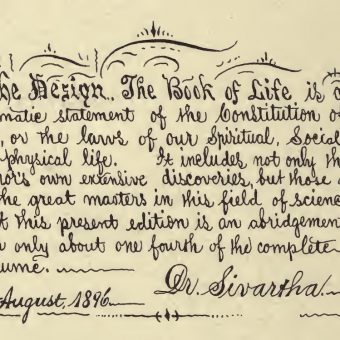 he Design. The Book of Life is a
matic statement of the Constitution o
, or the laws of our Spiritual, Social
physical life. It includes not only th
or's own extensive discoveries, but those
he great masters in this field of scienc
t this present edition is an abridgemen
n only about one fourth of the complete
ume.
Dr. Sivartha.
August, 1896